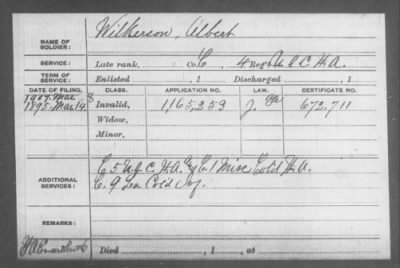 NAME OF SOLDIER: Wilkerson, Albert
SERVICE: Late rank, Co. C, 4 Reg't U S C H.A.
TERM OF SERVICE: Enlisted , 1 Discharged , 1
DATE OF FILING. CLASS. APPLICATION NO. LAW. CERTIFICATE NO.
1907 Mar 8
1895 Mar 14 Invalid, 1,165,259 J. 672,711
Widow,
Minor,
ADDITIONAL SERVICES: C. 5 U.S.C. H.A. C. 1 Miss Cold H.A.
C. 9 La Cold Inf.
REMARKS:
Died , 1 , at